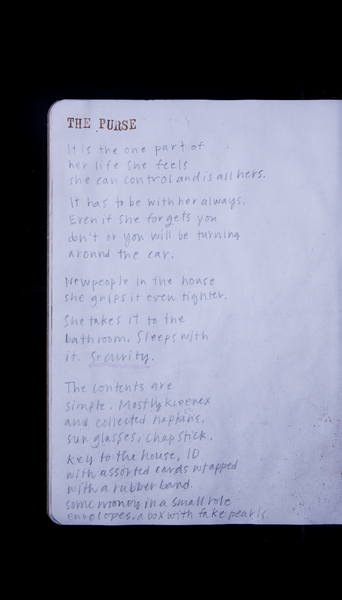 THE PURSE
It is the one part of
her life she feels
she can control and is all hers.
It has to be with her always.
Even if she forgets you
don't or you will be turning
around the car.
New people in the house
she grips it even tighter.
She takes it to the
bathroom. Sleeps with
it. Security.
The contents are
simple. Mostly kleenex
and collected napkins.
sunglasses, chapstick,
key to the house, ID
with assorted cards wrapped
with a rubber band.
some money in a small
envelopes, a box with fake pearls.